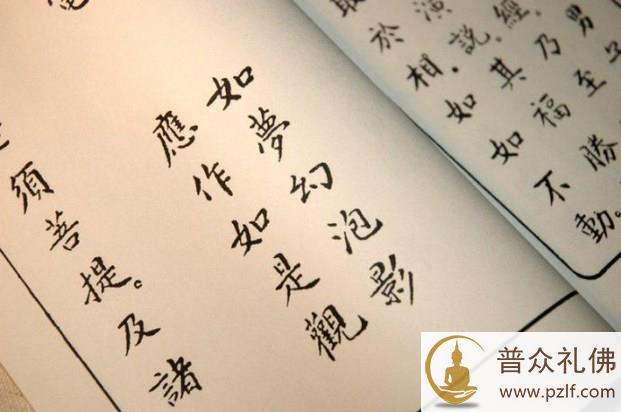 男子
經。乃至
演說。其福勝
取於相。如如不動。
如夢幻泡影
應作如是觀
須菩提。及諸
普众礼佛
www.pzlf.com